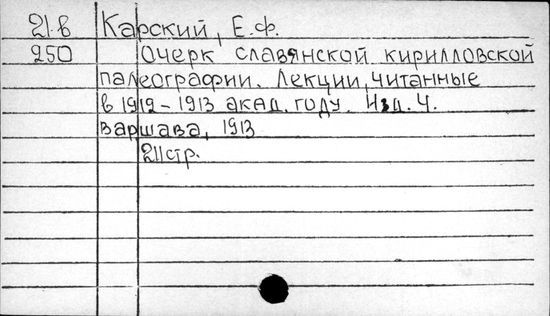 21.в Карский, Е.Ф.
250 Очерк славянской кирилловской
палеографии. Лекции, читанные
в 1912-1913 акад. году. Изд. 4.
Варшава, 1913
211стр.